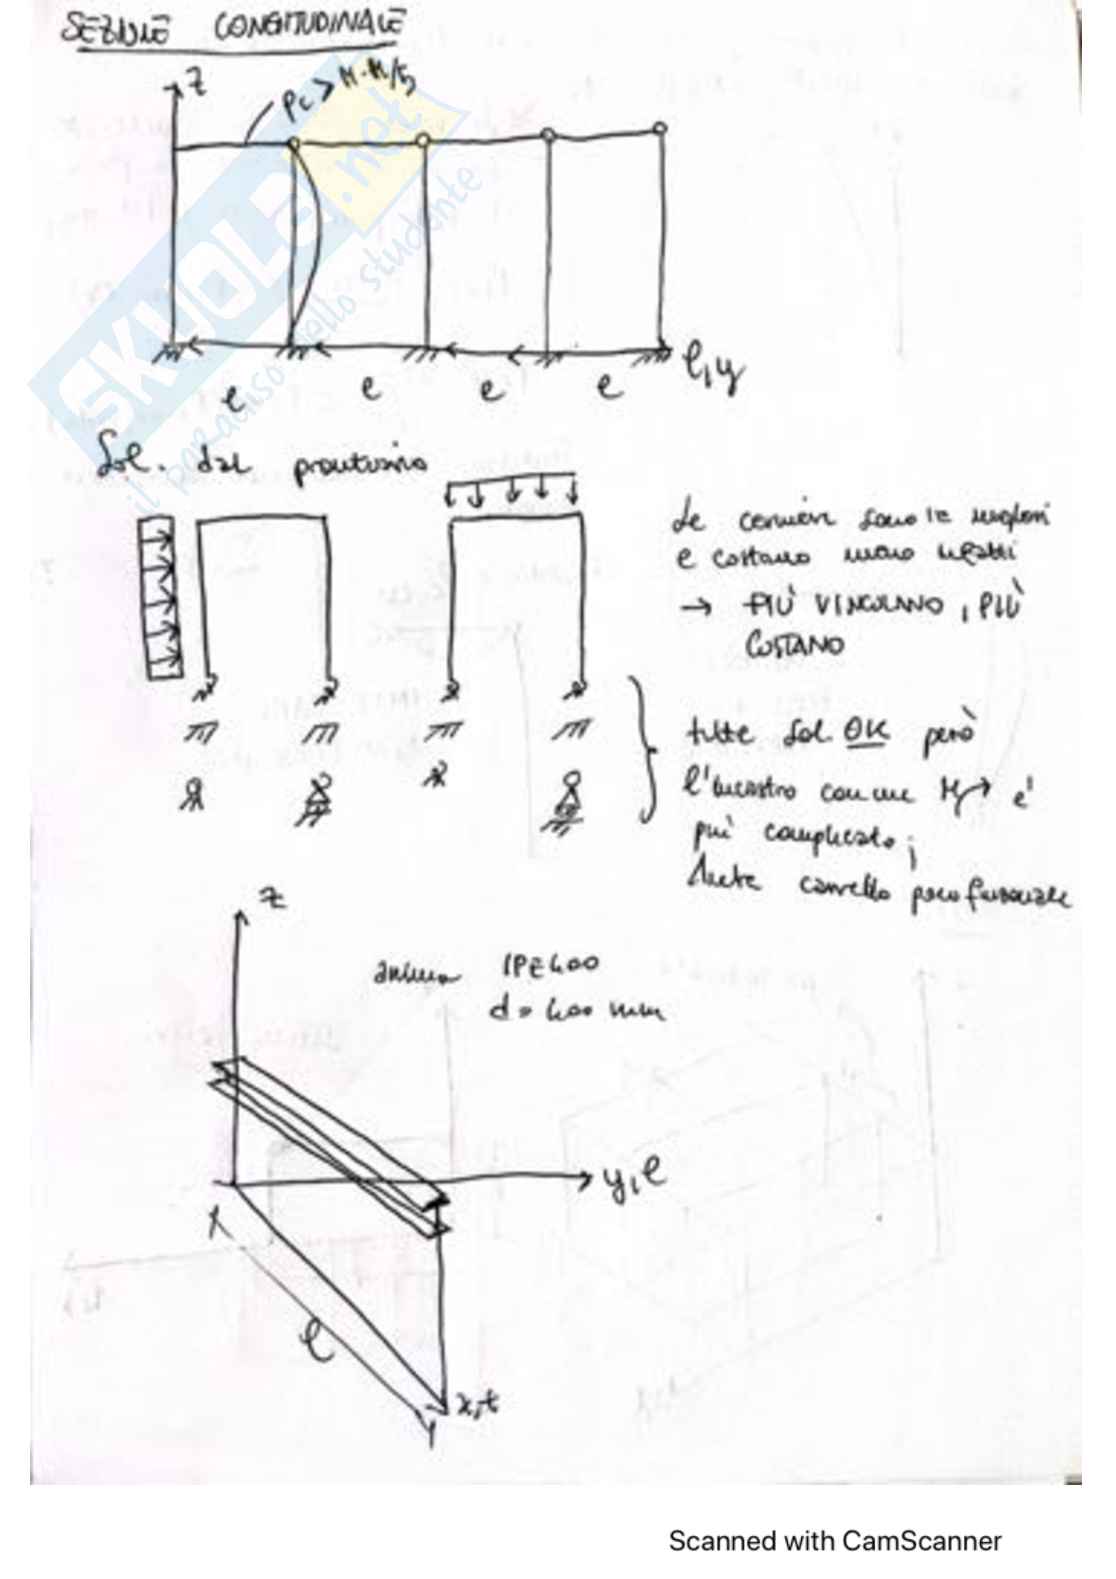 SEZIONE LONGITUDINALE
z
Pc > M·M/5
l l l l l,y
Sol. dal
Le cerniere sono le migliori
e costano meno negatti
→ PIÙ VINCOLANO, PIÙ
COSTANO
tutte sol OK però
l'incastro con un M è
più complicato;
Anche carrello poco funzionale
z
anima IPE400
d = 400 mm
y, l
l
x, t
SKUOLA.net
il paradiso dello studente
Scanned with CamScanner